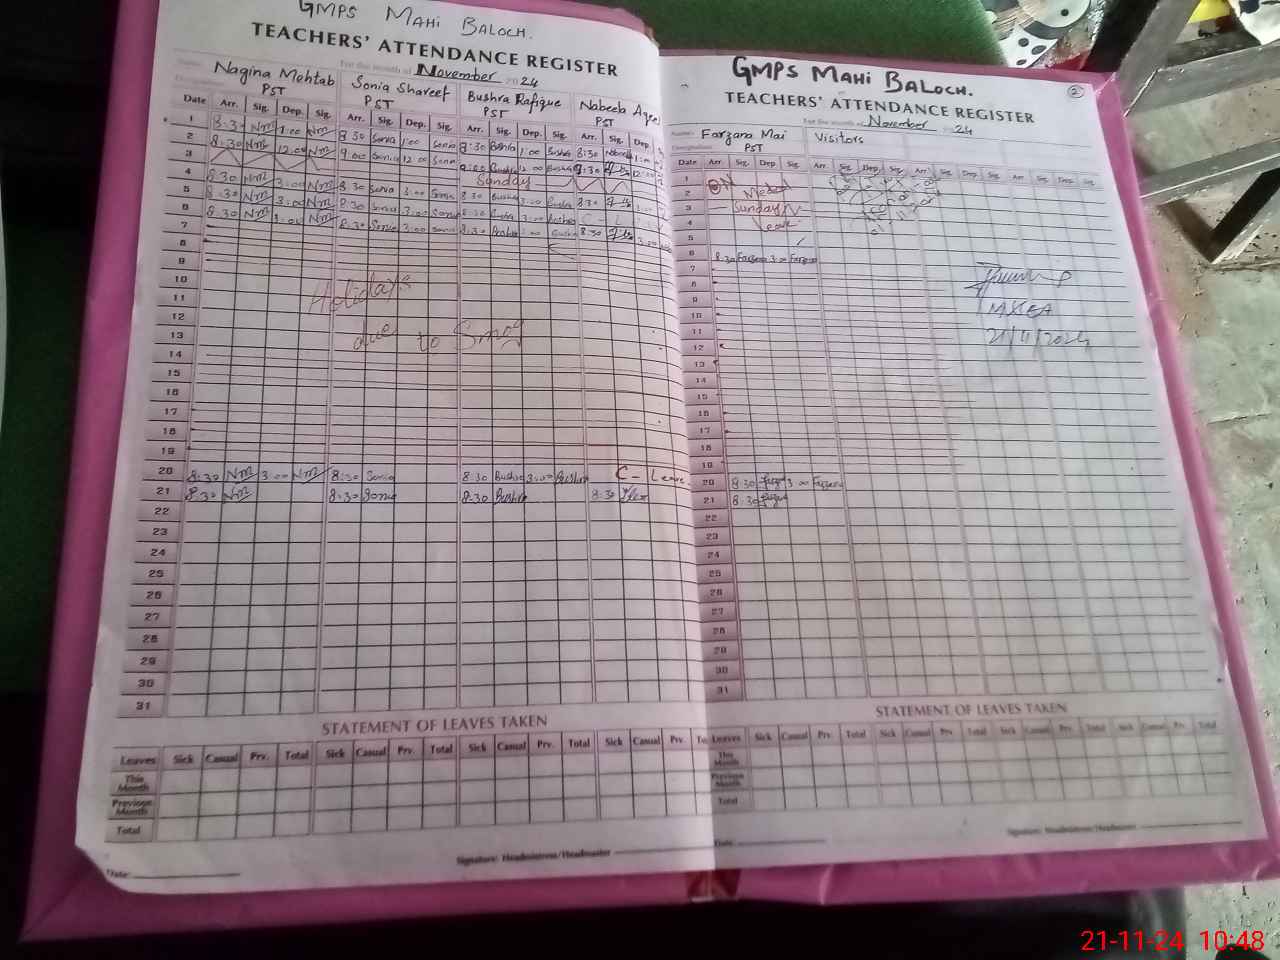 GMPS MAHI BALOCH.
TEACHERS' ATTENDANCE REGISTER
For the month of November 2024
Nagina Mehtab Sonia Shareef Bushra Rafique Nabeela
PST PST PST PST
Date Arr. Sig. Dep. Sig. Arr. Sig. Dep. Sig. Arr. Sig. Dep. Sig. Arr. Sig. Dep.
1 8:30 Nm 1:00 Nm 8 30 Sonia 1:00 Sonia 8:30 Bushra 1:00 Bushra 8:30
2 8:30 Nm 12:00 Nm 9:00 Sonia 12 00 Sonia 9:00 Bushra 12 00 Bushra
3 Sunday
4 8:30 Nm 3:00 Nm 8 30 Sonia 3:00 Sonia 8 30 Bushra 3:00 Bushra 8:30
5 8:30 Nm 3:00 Nm 8:30 Sonia 3:00 Sonia 8:30 Bushra 3:00 Bushra C - L
6 8:30 Nm 3:00 Nm 8:30 Sonia 3:00 Sonia 8:30 Bushra 3:00 Bushra 8:30
7
8
9
10 Holidays
11
12
13 due to Smog
14
15
16
17
18
19
20 8:30 Nm 3:00 Nm 8:30 Sonia 8:30 Bushra 3:00 Bushra C - Leave
21 8:30 Nm 8:30 Sonia 8:30 Bushra 8:30
22
23
24
25
26
27
28
29
30
31
STATEMENT OF LEAVES TAKEN
Leaves Sick Casual Prv. Total Sick Casual Prv. Total Sick Casual Prv. Total Sick Casual Prv.
This Month
Previous Month
Total
Signature: Headmistress/Headmaster
Date:
GMPS MAHI BALOCH.
2
TEACHERS' ATTENDANCE REGISTER
For the month of November 2024
Name: Farzana Mai Visitors
Designation: PST
Date Arr. Sig. Dep. Sig. Arr. Sig. Dep. Sig. Arr. Sig. Dep. Sig. Arr. Sig. Dep. Sig.
1
2
3 Sunday
4 Leave
5
6 8:30 Farzana 3:00 Farzana
7
8
9
10
11
12
13
14
15
16
17
18
19
20 8:30 3:00 Farzana
21 8:30
22
23
24
25
26
27
28
29
30
31
21/11/2024
STATEMENT OF LEAVES TAKEN
Leaves Sick Casual Prv. Total Sick Casual Prv. Total Sick Casual Prv. Total Sick Casual Prv. Total
This Month
Previous Month
Total
Signature: Headmistress/Headmaster
Date:
21-11-24 10:48